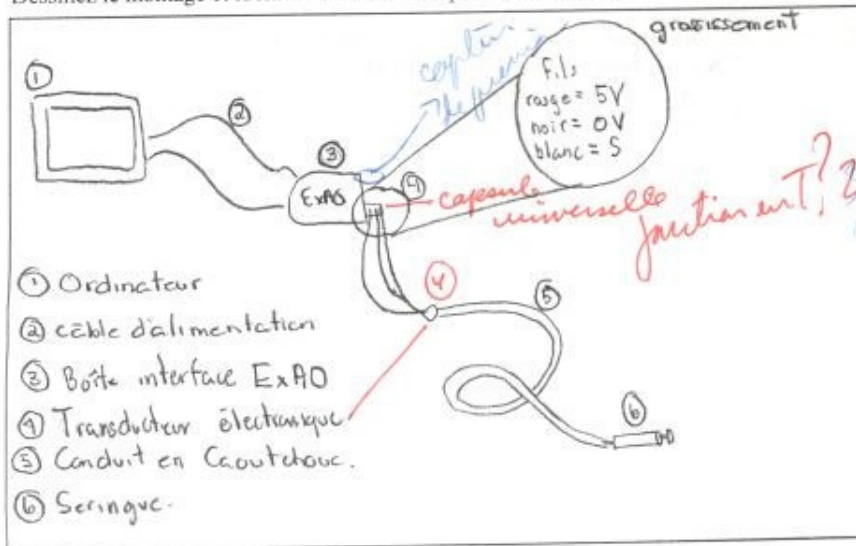 Dessinez le montage et
grossissement
①
②
capteur
de pression
Fils
rouge = 5V
noir = 0V
blanc = S
③
ExAO
④
capsule
universelle
jonction en T ? ?
④
⑤
⑥
① Ordinateur
② câble d'alimentation
③ Boîte interface ExAO
④ Transducteur électronique
⑤ Conduit en Caoutchouc.
⑥ Seringue.